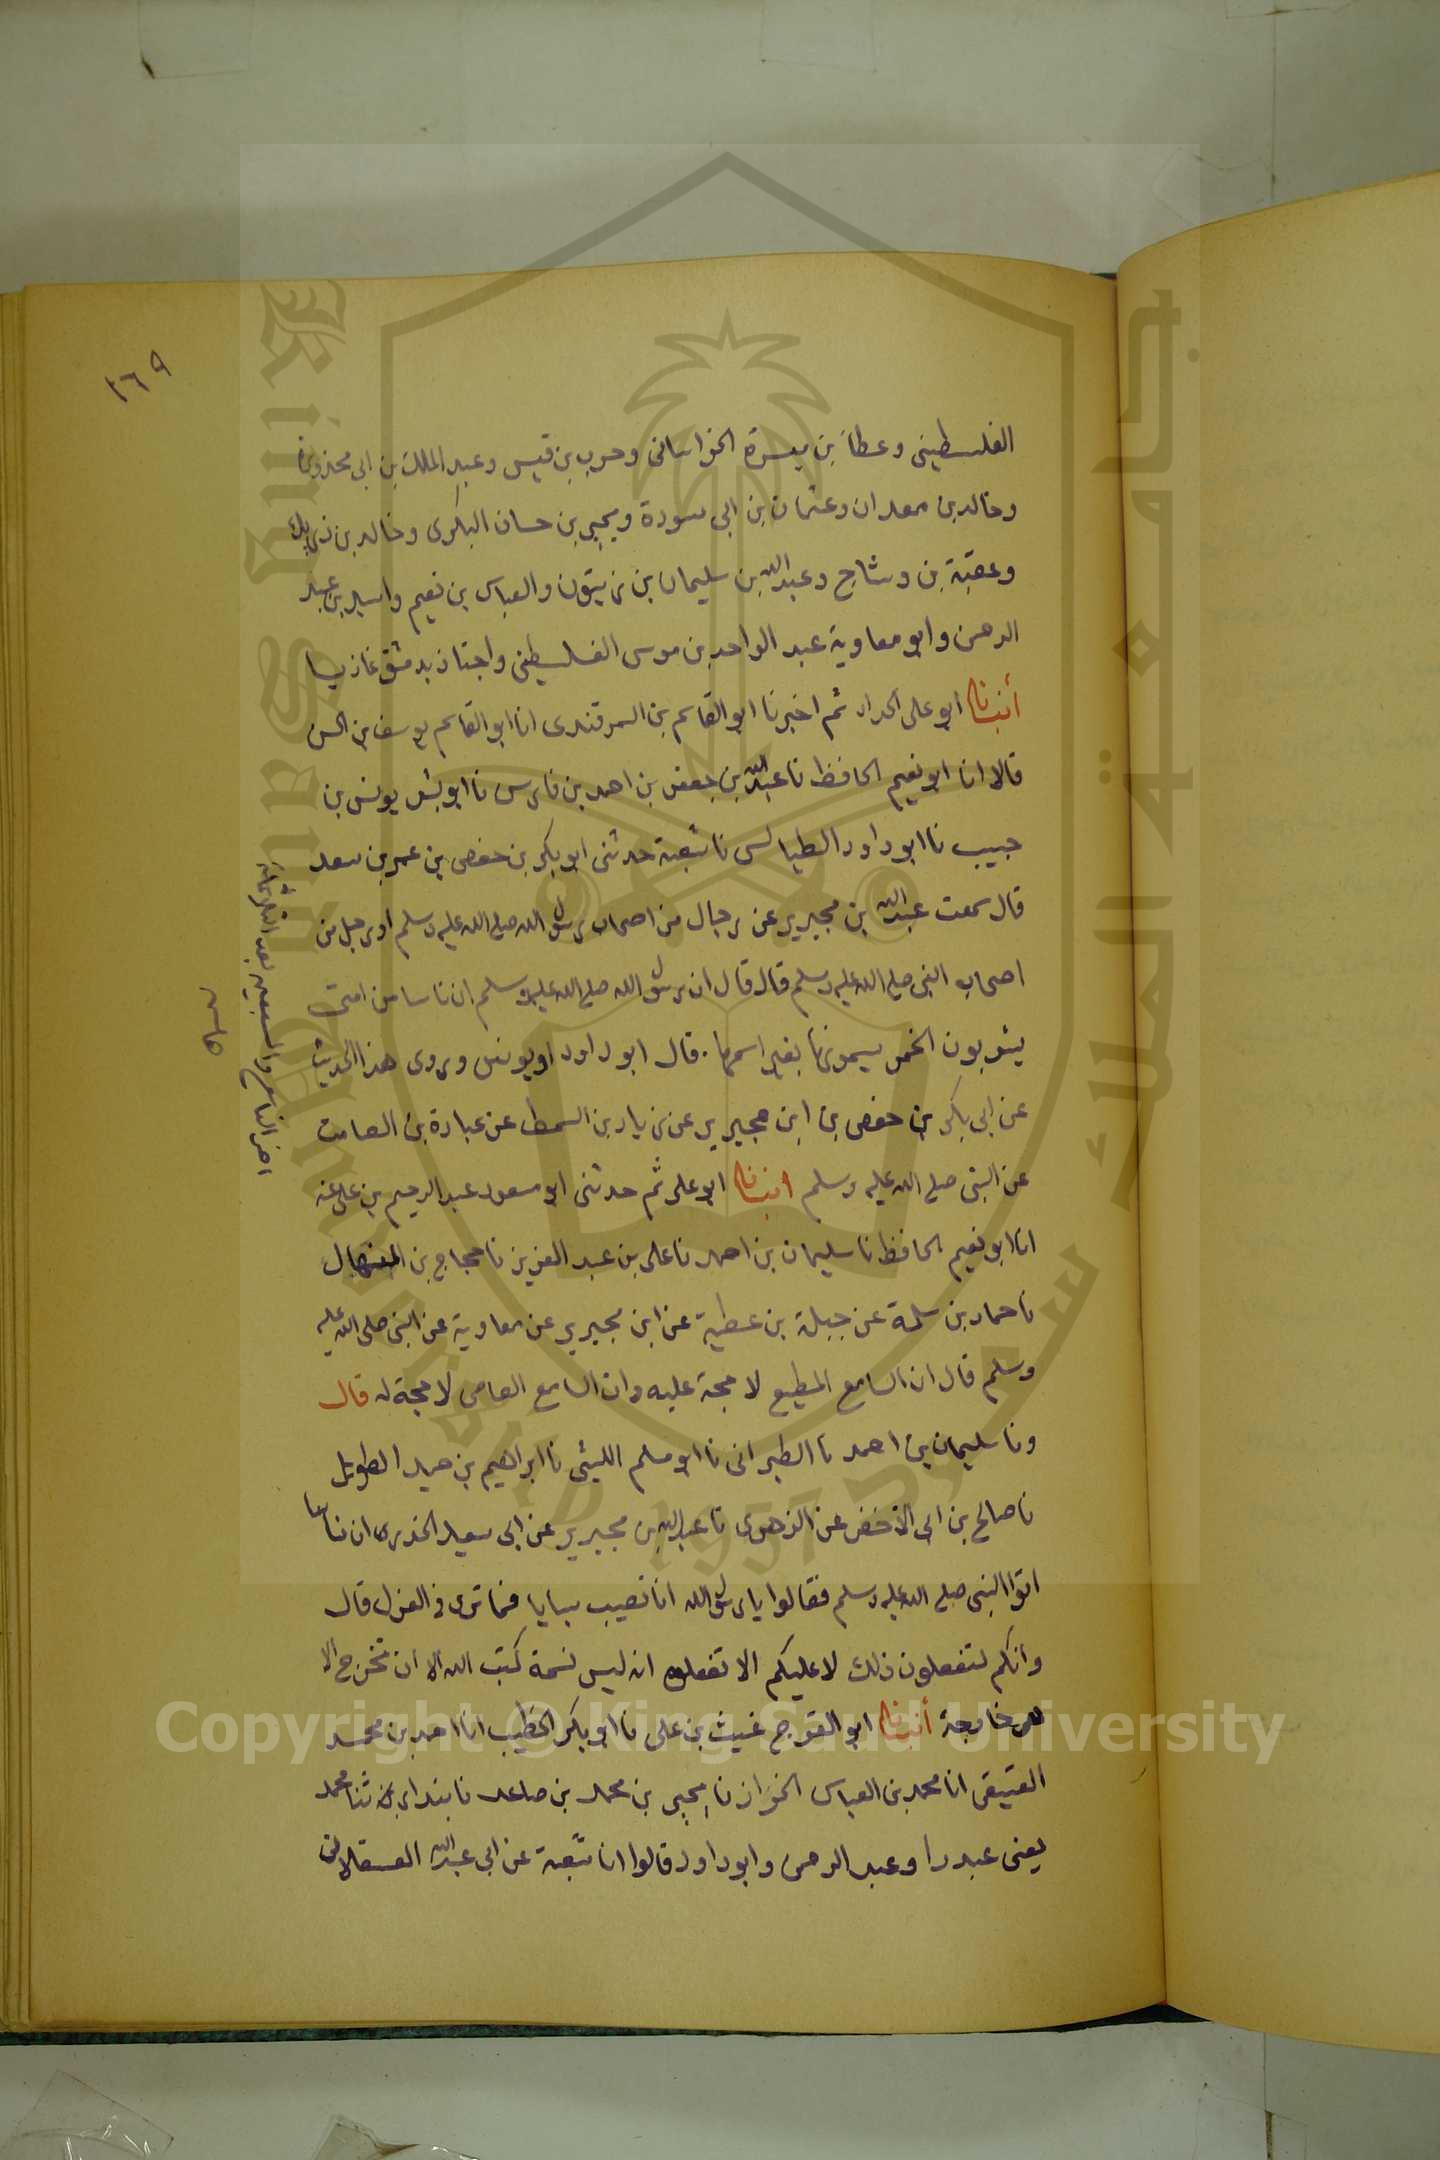 ٢٦٩
الفلسطينى وعطا بن ميسرة الخراسانى وحرب بن قيس وعبد الملك بن ابى محذورة
وخالد بن معدان وعثمان بن ابى سودة ويحيى بن حسان البكرى وخالد بن دريك
وعقبة بن وشاح وعبد الله بن سليمان بن زيتون والعباس بن نعيم واسيد بن عبد
الرحمن وابو معاوية عبد الواحد بن موسى الفلسطينى واجتاز بدمشق غازيا
أنبانا ابو على الحداد ثم اخبرنا ابو القاسم بن السمرقندى انا ابو القاسم يوسف بن الحسن
قالا انا ابو نعيم الحافظ نا عبد الله بن جعفر بن احمد بن فارس نا ابو بشر يونس بن
حبيب نا ابو داود الطيالسى نا شعبة حدثنى ابو بكر بن حفص بن عمر بن سعد
قال سمعت عبد الله بن محيريز عن رجال من اصحاب رسول الله صلى الله عليه وسلم او رجل من
اصحاب النبى صلى الله عليه وسلم قال قال ان رسول الله صلى الله عليه وسلم ان ناسا من امتى
يشربون الخمر يسمونها بغير اسمها . قال ابو داود او يونس وروى هذا الحديث
عن ابى بكر بن حفص بن ابن محيريز عن زياد بن السمط عن عبادة بن الصامت
عن النبى صلى الله عليه وسلم انبانا ابو على ثم حدثنى ابو مسعود عبد الرحيم بن على عنه
انا ابو نعيم الحافظ نا سليمان بن احمد نا على بن عبد العزيز نا حجاج بن المنهال
نا حماد بن سلمة عن جبلة بن عطية عن ابن محيريز عن معاوية عن النبى صلى الله عليه
وسلم قال ان السامع المطيع لا حجة عليه وان السامع العاصى لا حجة له قال
ونا سليمان بن احمد نا الطبرانى نا ابو مسلم الليثى نا ابراهيم بن حميد الطويل
نا صالح بن ابى الاخضر عن الزهرى نا عبد الله بن محيريز عن ابى سعيد الخدرى ان ناسا
اتوا النبى صلى الله عليه وسلم فقالوا يا رسول الله انا نصيب سبايا فما ترى فى العزل قال
وانكم لتفعلون ذلك لا عليكم الا تفعلوه انه ليس نسمة كتب الله الا ان تخرج الا
هى خارجة أنبانا ابو الفرج غيث بن على نا ابو بكر الخطيب انا احمد بن محمد
العتيقى انا محمد بن العباس الخزاز نا يحيى بن محمد بن صاعد نا بندار بن ثنا محمد
يعنى عبد را وعبد الرحمن وابو داود قالوا انا شعبة عن ابى عبد الله العسقلانى
اخر التاسع والسبعين بعد الثلاثمائة
Copyright © King Saud University
King Saud University
1957
جامعة الملك سعود